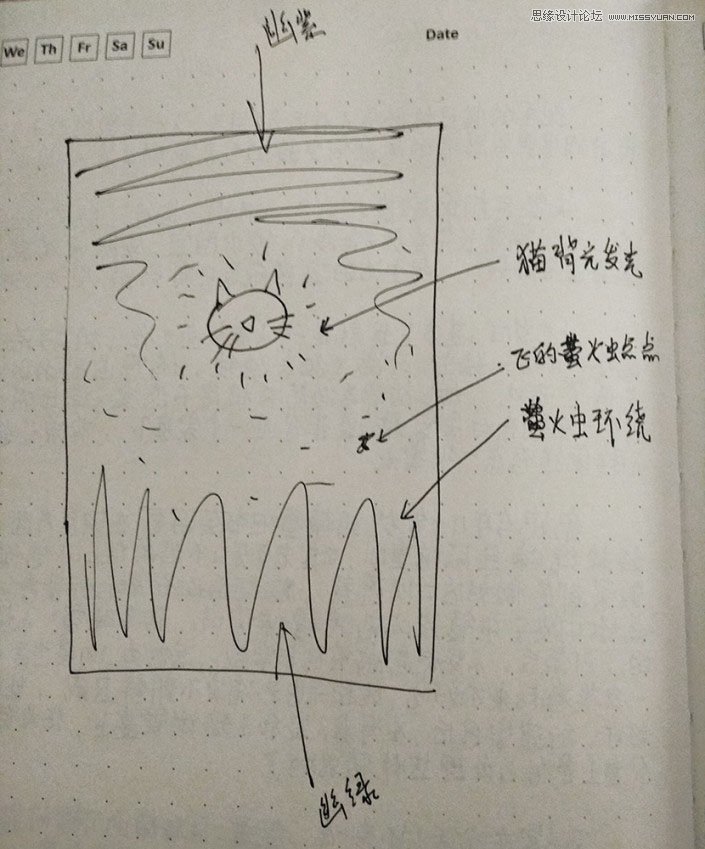 思缘设计论坛 WWW.MISSYUAN.COM
We Th Fr Sa Su
Date
幽紫
猫背光发光
飞的萤火虫点点
萤火虫环绕
幽绿